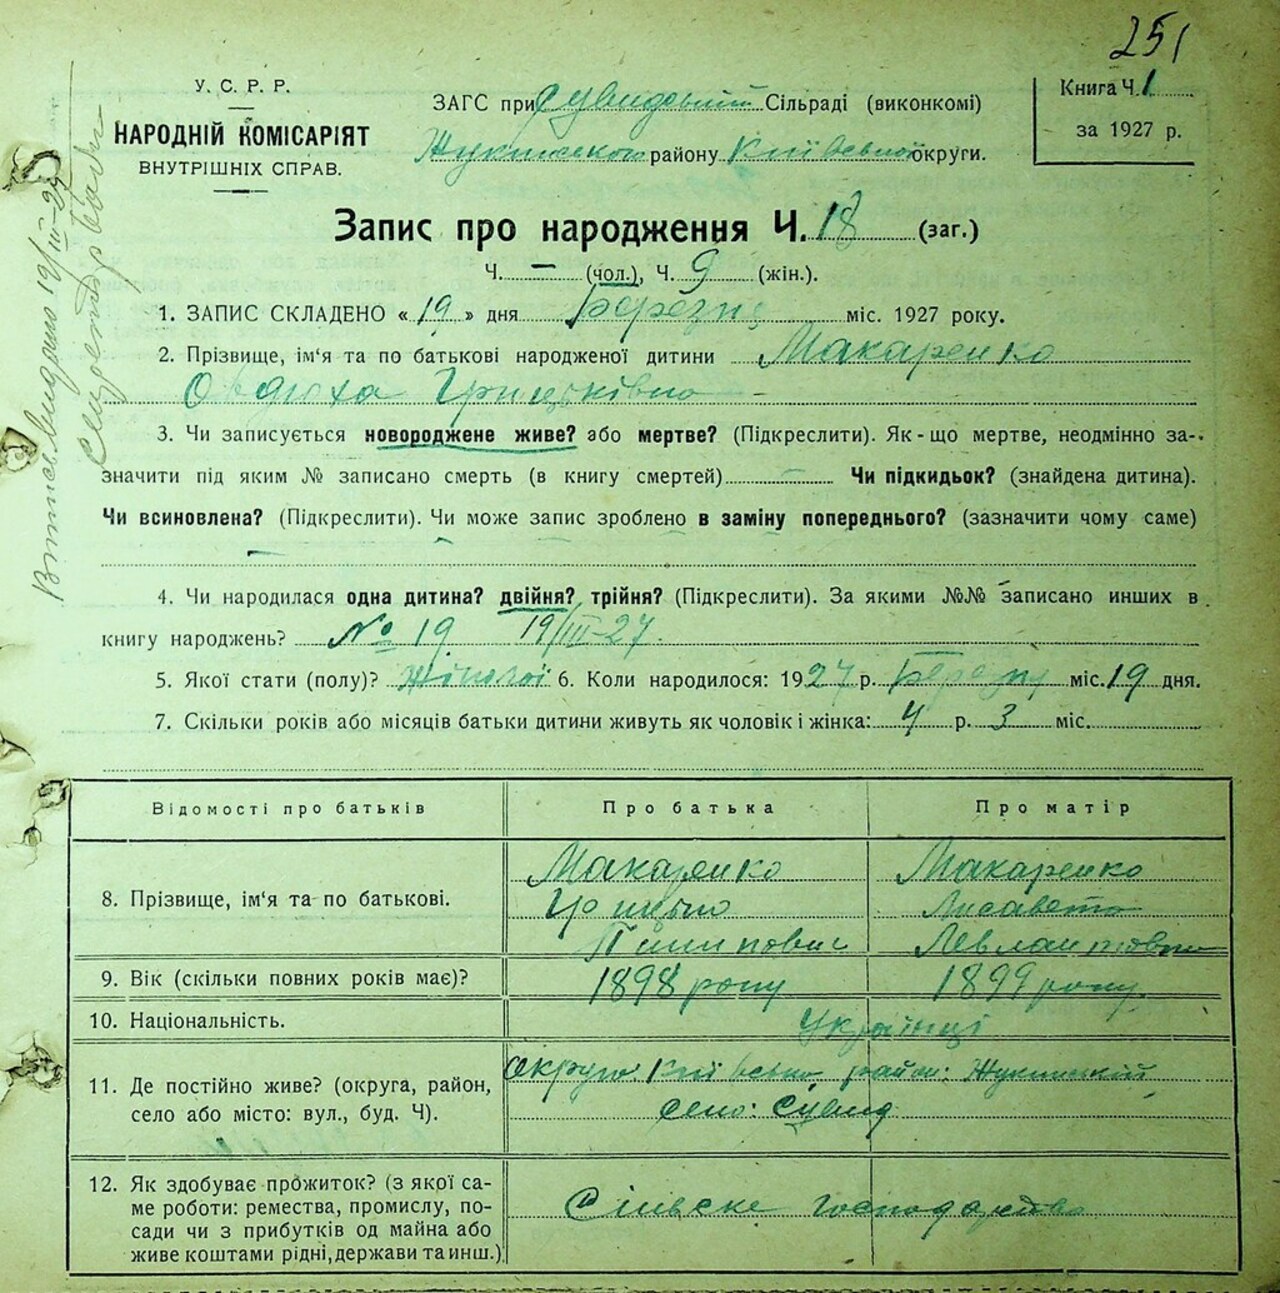 251
У. С. Р. Р.
НАРОДНІЙ КОМІСАРІЯТ
ВНУТРІШНІХ СПРАВ.
ЗАГС при Сувидській Сільраді (виконкомі)
Жукинського району Київської округи.
Книга Ч. 1
за 1927 р.
Запис про народження Ч. 18 (заг.)
Ч. — (чол.), Ч. 9 (жін.).
1. ЗАПИС СКЛАДЕНО « 19 » дня Березня міс. 1927 року.
2. Прізвище, ім'я та по батькові народженої дитини Макаренко
Овдюха Грицьківна
3. Чи записується новороджене живе? або мертве? (Підкреслити). Як-що мертве, неодмінно за-
значити під яким № записано смерть (в книгу смертей) — Чи підкидьок? (знайдена дитина).
Чи всиновлена? (Підкреслити). Чи може запис зроблено в заміну попереднього? (зазначити чому саме)
—
4. Чи народилася одна дитина? двійня? трійня? (Підкреслити). За якими №№ записано инших в
книгу народжень? № 19 19/III-27.
5. Якої стати (полу)? Жіночої 6. Коли народилося: 1927 р. Березня міс. 19 дня.
7. Скільки років або місяців батьки дитини живуть як чоловік і жінка: 4 р. 3 міс.
Відомості про батьків Про батька Про матір
8. Прізвище, ім'я та по батькові.
Макаренко Макаренко
Грицько Лисавета
Пилипович
9. Вік (скільки повних років має)? 1898 року 1899 року
10. Національність. Українці
11. Де постійно живе? (округа, район,
село або місто: вул., буд. Ч).
округа Київська район: Жукинський
село: Сувид
12. Як здобуває прожиток? (з якої са-
ме роботи: ремества, промислу, по-
сади чи з прибутків од майна або
живе коштами рідні, держави та инш.)
Сільське господарство